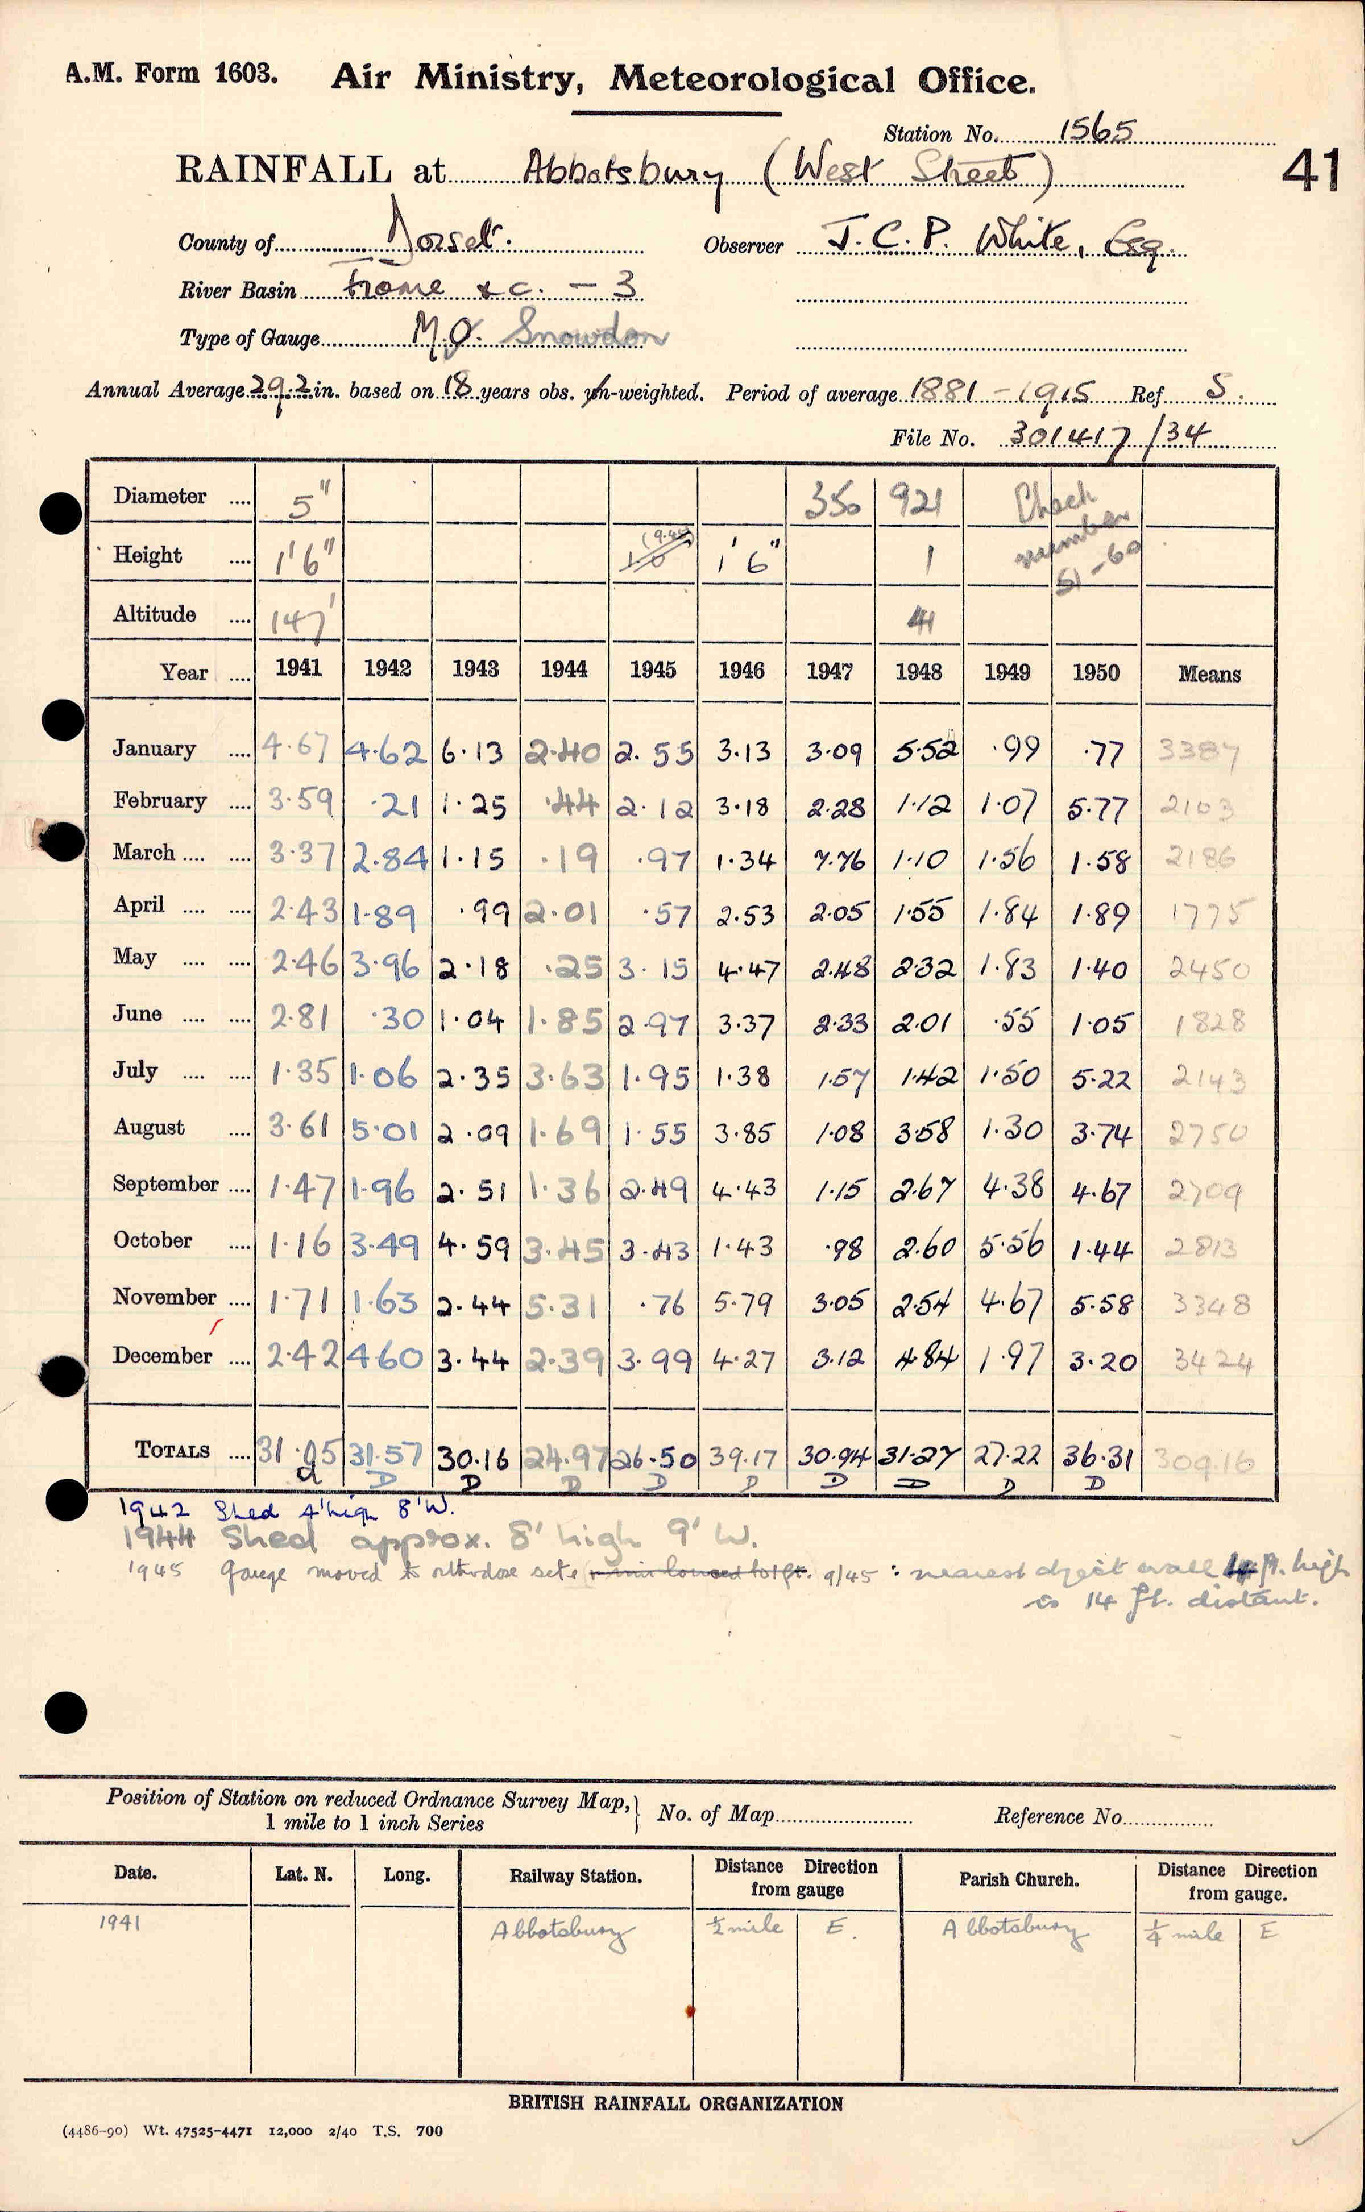 A.M. Form 1603. Air Ministry, Meteorological Office.
Station No. 1565
41
RAINFALL at Abbotsbury (West Street)
County of Dorset. Observer J. C. P. White, Esq.
River Basin Frome &c. - 3
Type of Gauge M.O. Snowdon
Annual Average 29.2 in. based on 18 years obs. un-weighted. Period of average 1881-1915 Ref S.
File No. 301417/34
Diameter .... 5" 350 921 Check
Height .... 1'6" 1.0 (9.45) 1'6" 1 number
51-60
Altitude .... 147' 41
Year .... 1941 1942 1943 1944 1945 1946 1947 1948 1949 1950 Means
January .... 4.67 4.62 6.13 2.40 2.55 3.13 3.09 5.52 .99 .77 3387
February .... 3.59 .21 1.25 .44 2.12 3.18 2.28 1.12 1.07 5.77 2103
March .... .... 3.37 2.84 1.15 .19 .97 1.34 7.76 1.10 1.56 1.58 2186
April .... .... 2.43 1.89 .99 2.01 .57 2.53 2.05 1.55 1.84 1.89 1775
May .... .... 2.46 3.96 2.18 .25 3.15 4.47 2.48 2.32 1.83 1.40 2450
June .... .... 2.81 .30 1.04 1.85 2.97 3.37 2.33 2.01 .55 1.05 1828
July .... .... 1.35 1.06 2.35 3.63 1.95 1.38 1.57 1.42 1.50 5.22 2143
August .... 3.61 5.01 2.09 1.69 1.55 3.85 1.08 3.58 1.30 3.74 2750
September .... 1.47 1.96 2.51 1.36 2.49 4.43 1.15 2.67 4.38 4.67 2709
October .... 1.16 3.49 4.59 3.45 3.43 1.43 .98 2.60 5.56 1.44 2813
November .... 1.71 1.63 2.44 5.31 .76 5.79 3.05 2.54 4.67 5.58 3348
December .... 2.42 4.60 3.44 2.39 3.99 4.27 3.12 4.84 1.97 3.20 3424
TOTALS .... 31.05 31.57 30.16 24.97 26.50 39.17 30.94 31.27 27.22 36.31 309.16
d D D D D D D D D D
1942 Shed 4' high 8' W.
1944 Shed approx. 8' high 9' W.
1945 gauge moved to site 9/45 : nearest object wall 4 ft. high
is 14 ft. distant.
Position of Station on reduced Ordnance Survey Map,
1 mile to 1 inch Series } No. of Map Reference No.
Date. Lat. N. Long. Railway Station. Distance Direction from gauge Parish Church. Distance Direction from gauge.
1941 Abbotsbury ½ mile E. Abbotsbury ¼ mile E
BRITISH RAINFALL ORGANIZATION
(4486-90) Wt. 47525-4471 12,000 2/40 T.S. 700